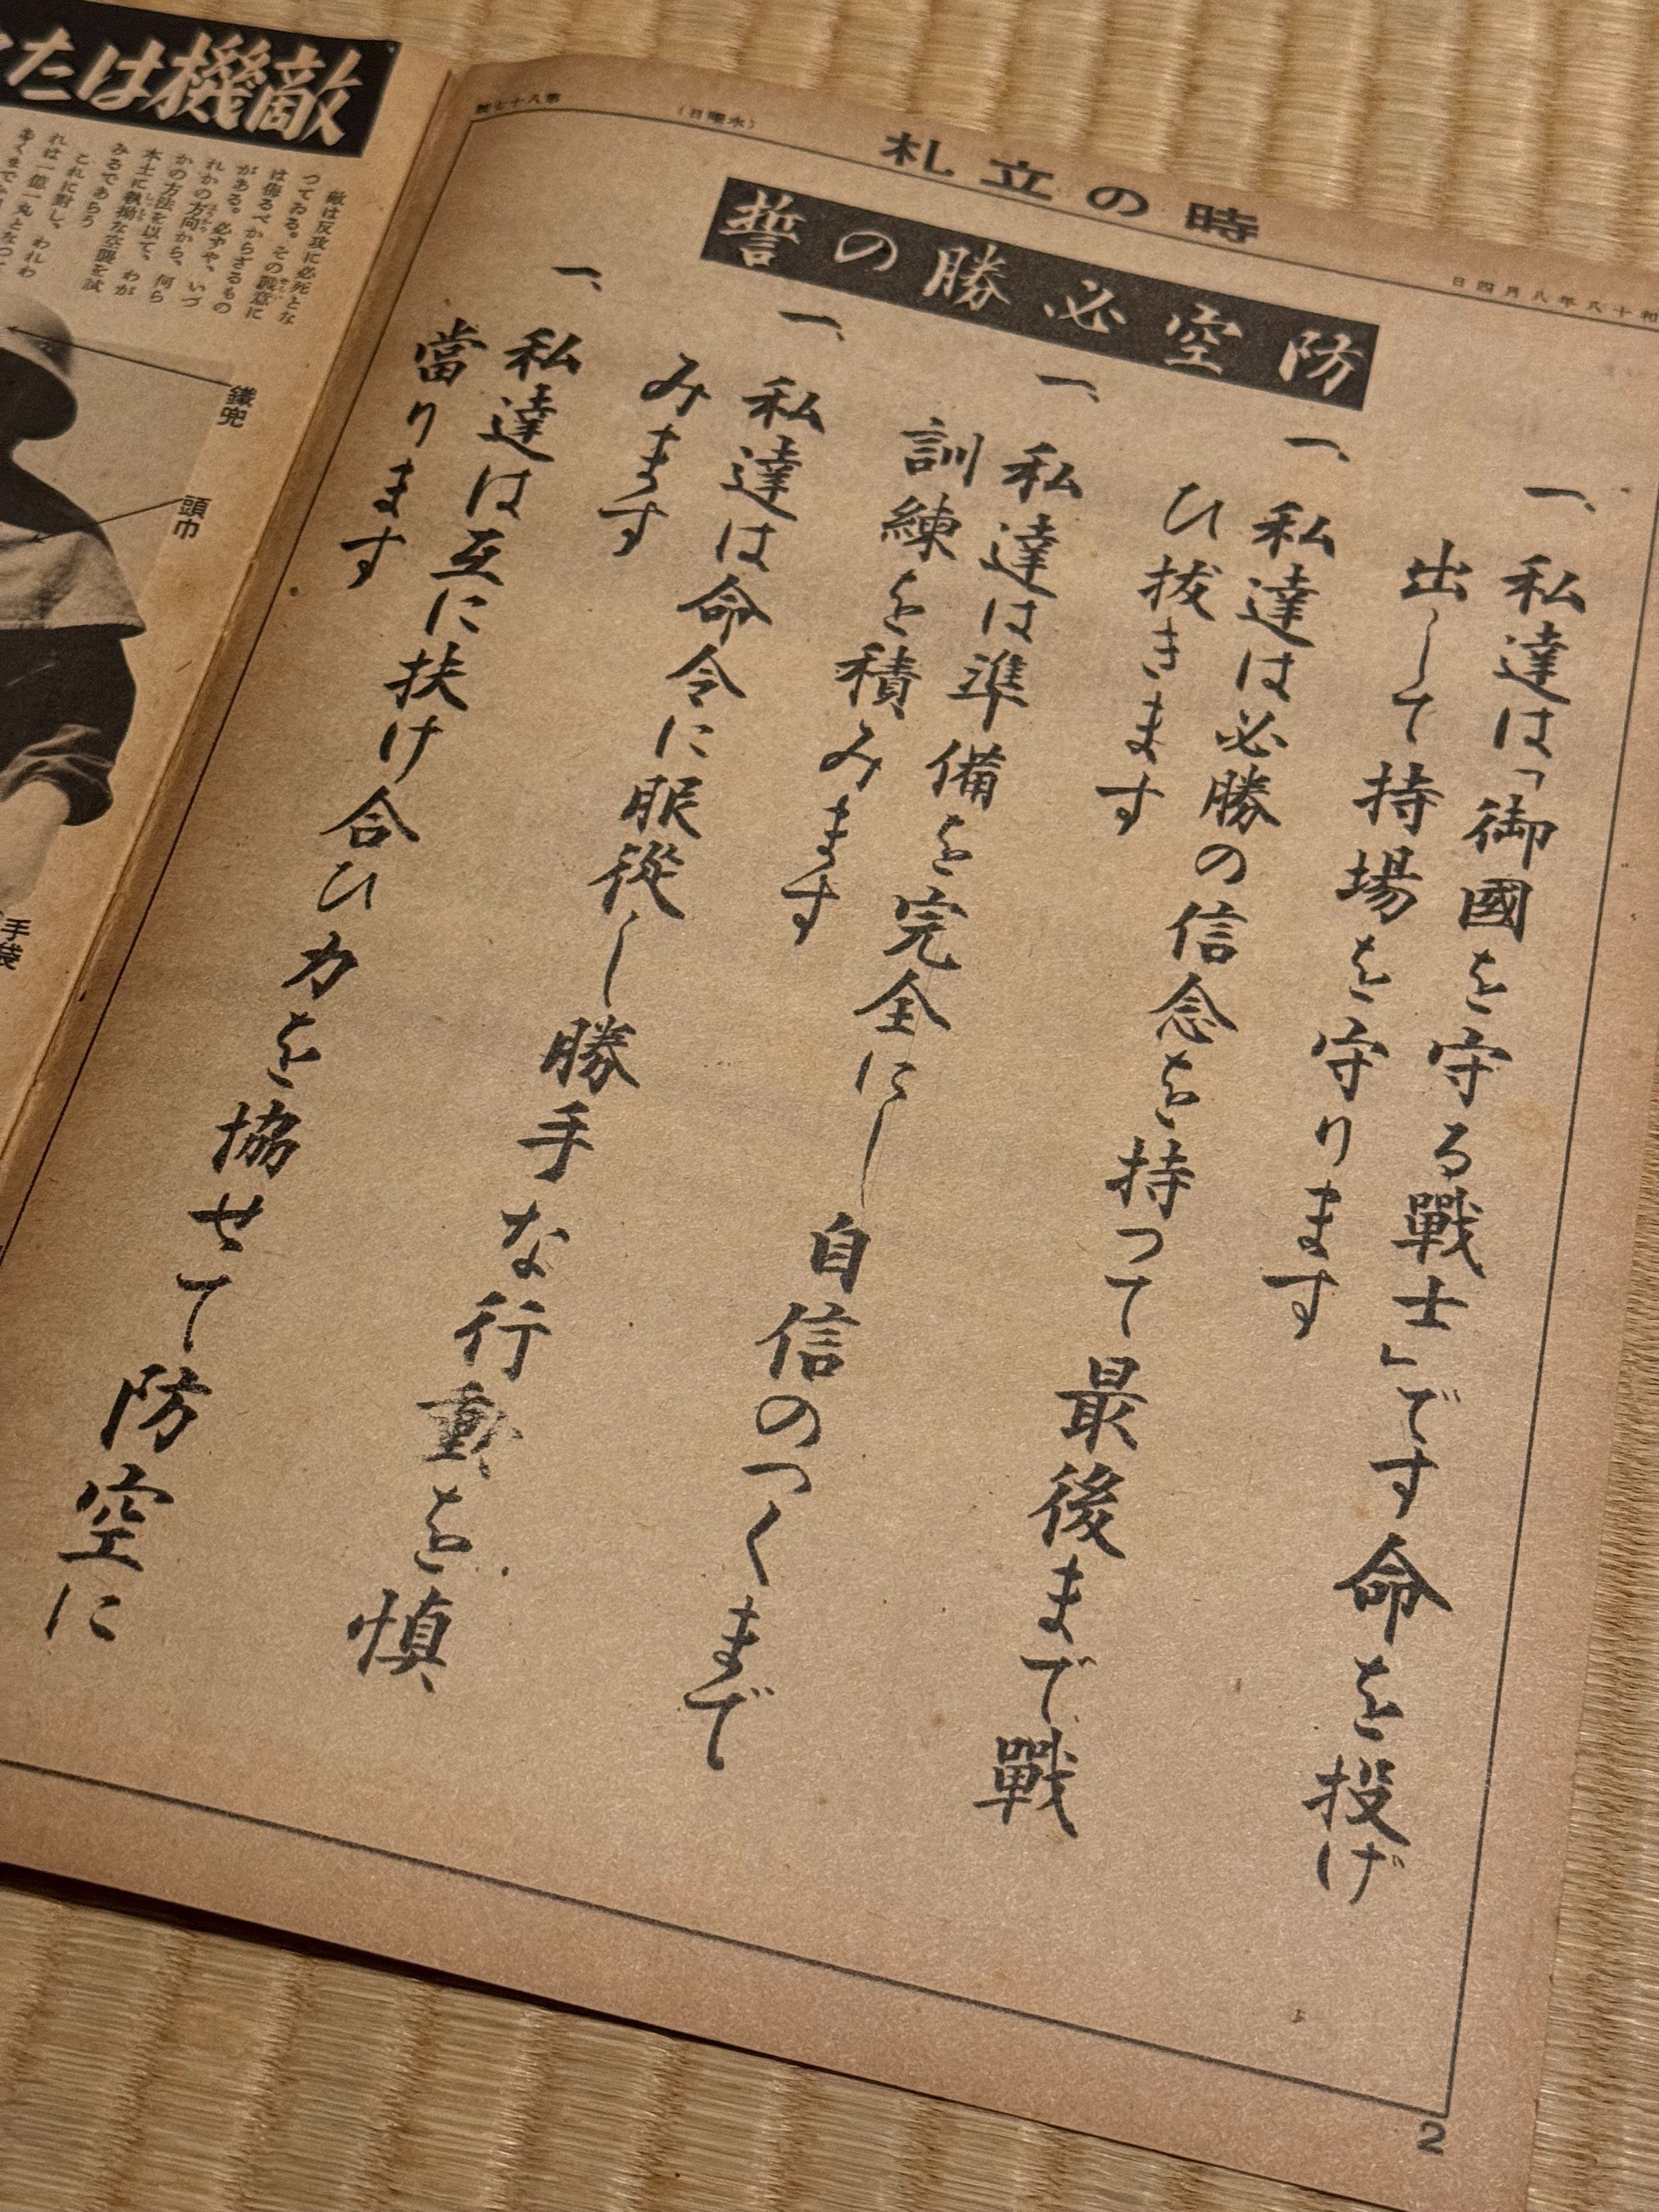 時の立札
和十八年八月四日
(水曜日)
防空必勝の誓
一、私達は「御國を守る戰士」です命を投げ
出して持場を守ります
一、私達は必勝の信念を持つて最後まで戰
ひ抜きます
一、私達は準備を完全にし自信のつくまで
訓練を積みます
一、私達は命令に服從し勝手な行動を慎
みます
一、私達は互に扶け合ひ力を協せて防空に
當ります
2
敵機はた
敵は反攻に必死とな
つてゐる。その戰意に
は侮るべからざるもの
がある。必ずや、いづ
れかの方向から、何ら
かの方法を以て、わが
本土に執拗な空襲を試
みるであらう
これに對し、われわ
れは一億一丸となつて
鐵兜
頭巾
手袋